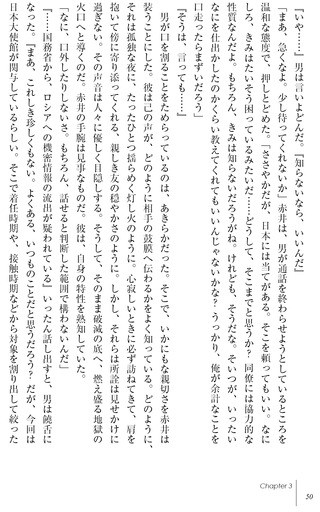 「いや……」男は言いよどんだ。「知らないなら、いいんだ」
「まあ、急くなよ。少し待ってくれないか」赤井は、男が通話を終わらせようとしているところを
温和な態度で、押しとどめた。「ささやかだが、日本には当てがある。そこを頼ってもいい。なに
しろ、きみはたいそう困っているみたいだ……どうして、そこまでと思うか？　同僚には協力的な
性質なんだよ。もちろん、きみは知らないだろうがね。けれども、そうだな。そいつが、いったい
なにを仕出かしたのかくらい教えてくれてもいいんじゃないかな？　うっかり、俺が余計なことを
口走ったらまずいだろう」
「そうは、言っても……」
　男が口を割ることをためらっているのは、あきらかだった。そこで、いかにもな親切さを赤井は
装うことにした。彼は己の声が、どのように相手の鼓膜へ伝わるかをよく知っている。どのように、
それは孤独な夜に、たったひとつ揺らめく灯し火のように。心寂しいときに必ず訪ねてきて、肩を
抱いて傍に寄り添ってくれる、親しき友の穏やかさのように。しかし、それらは所詮は見せかけに
過ぎない。その声音は人々に優しく目隠しする。そうして、そのまま破滅の底へ、燃え盛る地獄の
火口へと導くのだ。赤井の手腕は見事なものだ。彼は、自身の特性を熟知していた。
「なに、口外したりしないさ。もちろん、話せると判断した範囲で構わないんだ」
「……国務省から、ロシアへの機密情報の流出が疑われている」いったん話し出すと、男は饒舌に
なった。「まあ、これしき珍しくもない。よくある、いつものことだと思うだろう？　だが、今回は
日本大使館が関与しているらしい。そこで着任時期や、接触時期などから対象を割り出して絞った
Chapter 3
50